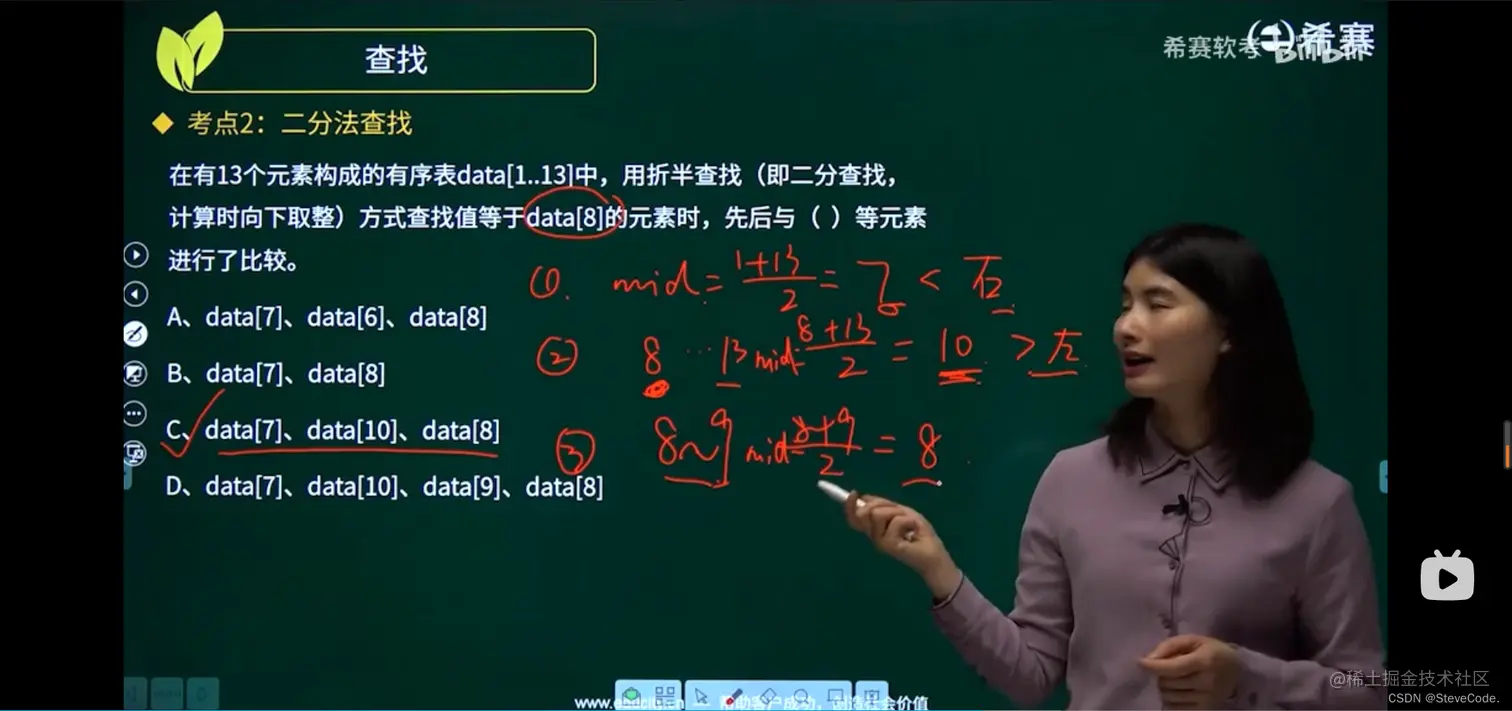 查找
希赛软考
希赛
bilibili
考点2：二分法查找
在有13个元素构成的有序表data[1..13]中，用折半查找（即二分查找，
计算时向下取整）方式查找值等于data[8]的元素时，先后与（ ）等元素
进行了比较。
① mid = 1+13 / 2 = 7 < 右
A、data[7]、data[6]、data[8]
② 8 … 13 mid = 8+13 / 2 = 10 > 左
B、data[7]、data[8]
C、data[7]、data[10]、data[8]
③ 8~9 mid = 8+9 / 2 = 8
D、data[7]、data[10]、data[9]、data[8]
@稀土掘金技术社区
CSDN @SteveCode.